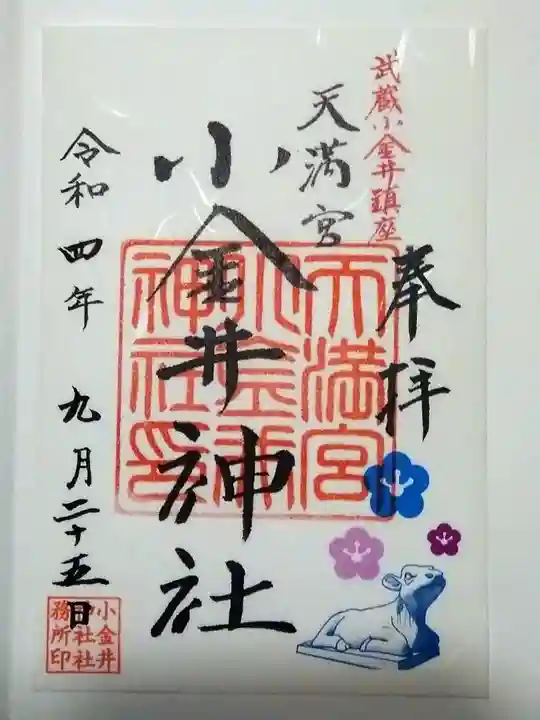 武蔵小金井鎮座
奉拝
天満宮
小金井神社
天満宮
小金井
神社印
令和四年 九月二十五日
小金井
神社社
務所印